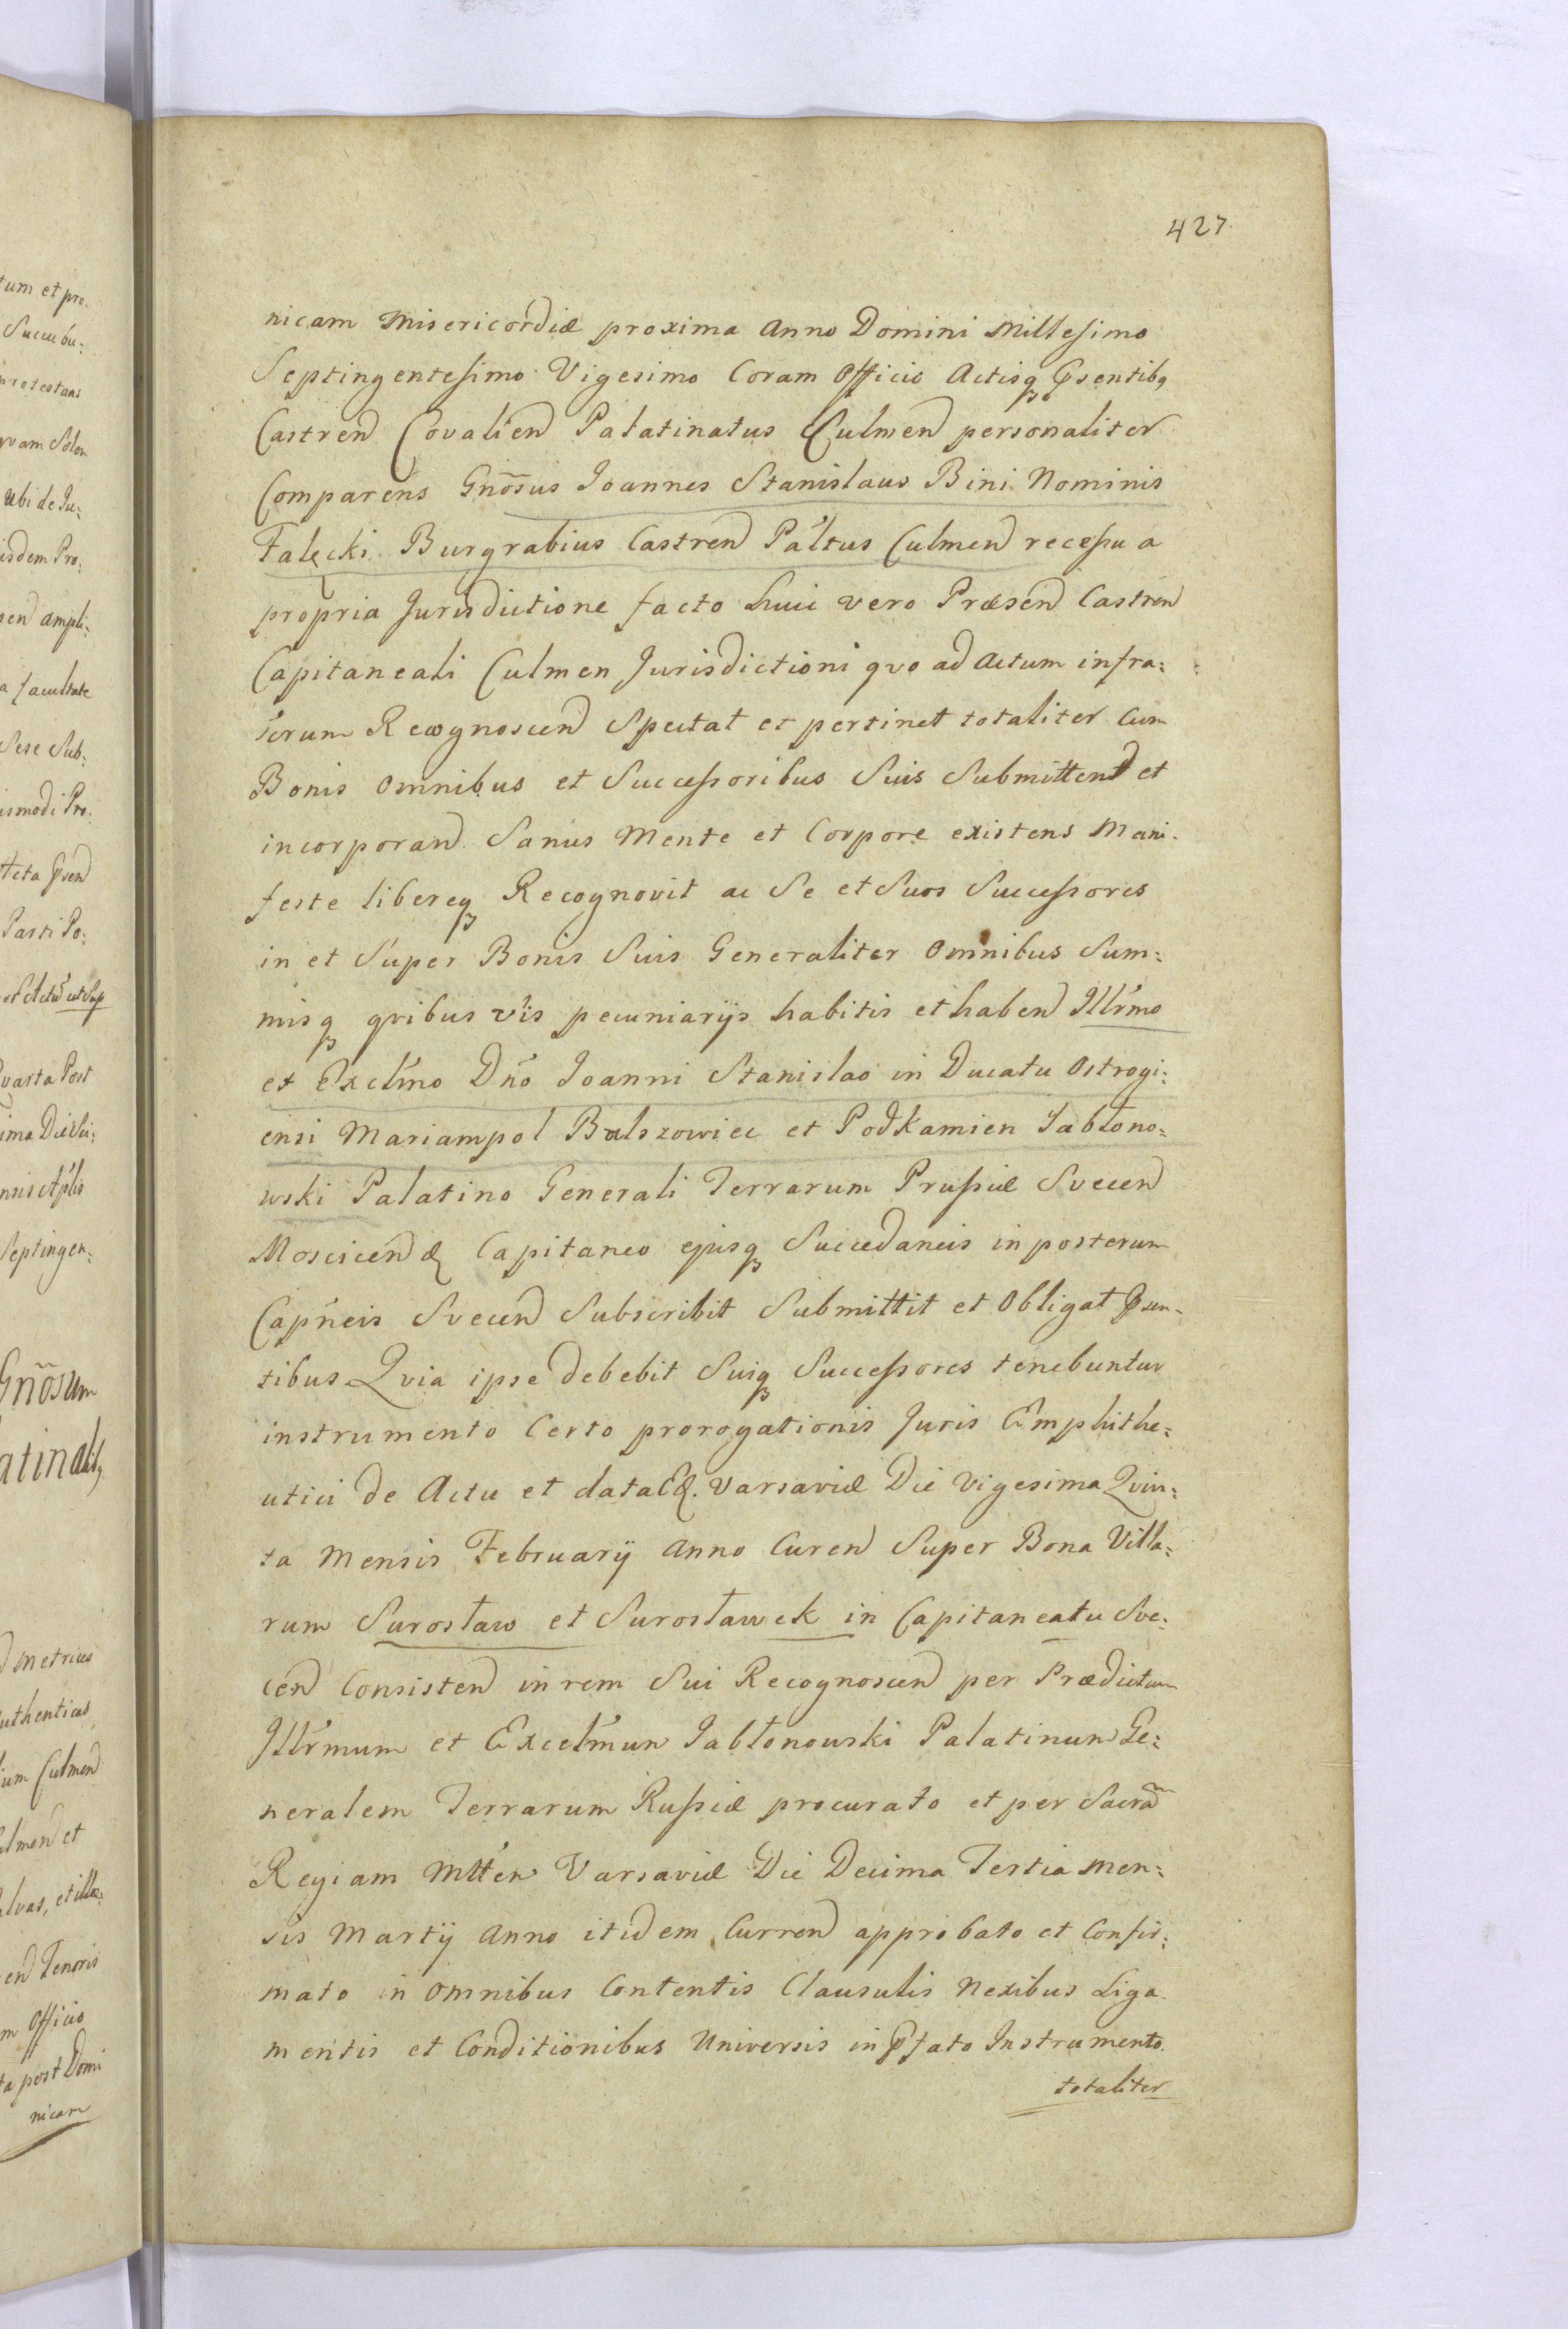 427
nicam Misericordiæ proxima Anno Domini Millesimo
Septingentesimo Vigesimo Coram Officio Actisq Psentibq
Castren Covalien Palatinatus Culmen personaliter
Comparens Gnosus Joannes Stanislaus Bini Nominis
Falęcki Burgrabius Castren Paltus Culmen recessu a
propria Jurisdictione facto huic vero Præsen Castren
Capitaneali Culmen Jurisdictioni qvo ad Actum infra:
scrum Recognoscen Spectat et pertinet totaliter cum
Bonis omnibus et Successoribus Suis Submitten et
incorporan Sanus Mente et Corpore existens Mani-
feste libereq Recognovit ac Se et Suos Successores
in et Super Bonis Suis Generaliter omnibus Sum:
misq qvibus vis pecuniarijs habitis et haben Illrmo
et Exclmo Dno Joanni Stanislao in Ducatu Ostrogi:
ensi Mariampol Bolszowiec et Podkamien Jabłono:
wski Palatino Generali Terrarum Prussiæ Svecen
Moscicen & Capitaneo ejusq Succedaneis in posterum
Capneis Svecen Subscribit Submittit et Obligat Psen-
tibus Qvia ipse debebit Suiq Successores tenebuntur
instrumento Certo prorogationis Juris Emphithe:
utici de Actu et data Varsaviæ Die Vigesima Qvin:
ta Mensis Februarij Anno Curen Super Bona Villa:
rum Surosław et Surosławek in Capitaneatu Sve:
cen Consisten in rem Sui Recognoscen per Prædictum
Illrmum et Excelmum Jabłonowski Palatinum Ge:
neralem Terrarum Russiæ procurato et per Sacra
Regiam Mtten Varsaviæ Die Decima Tertia Men:
sis Martij Anno itidem Curren approbato et Confir:
mato in omnibus Contentis Clausulis Nexibus Liga-
mentis et Conditionibus Universis in Pfato Instrumento
totaliter